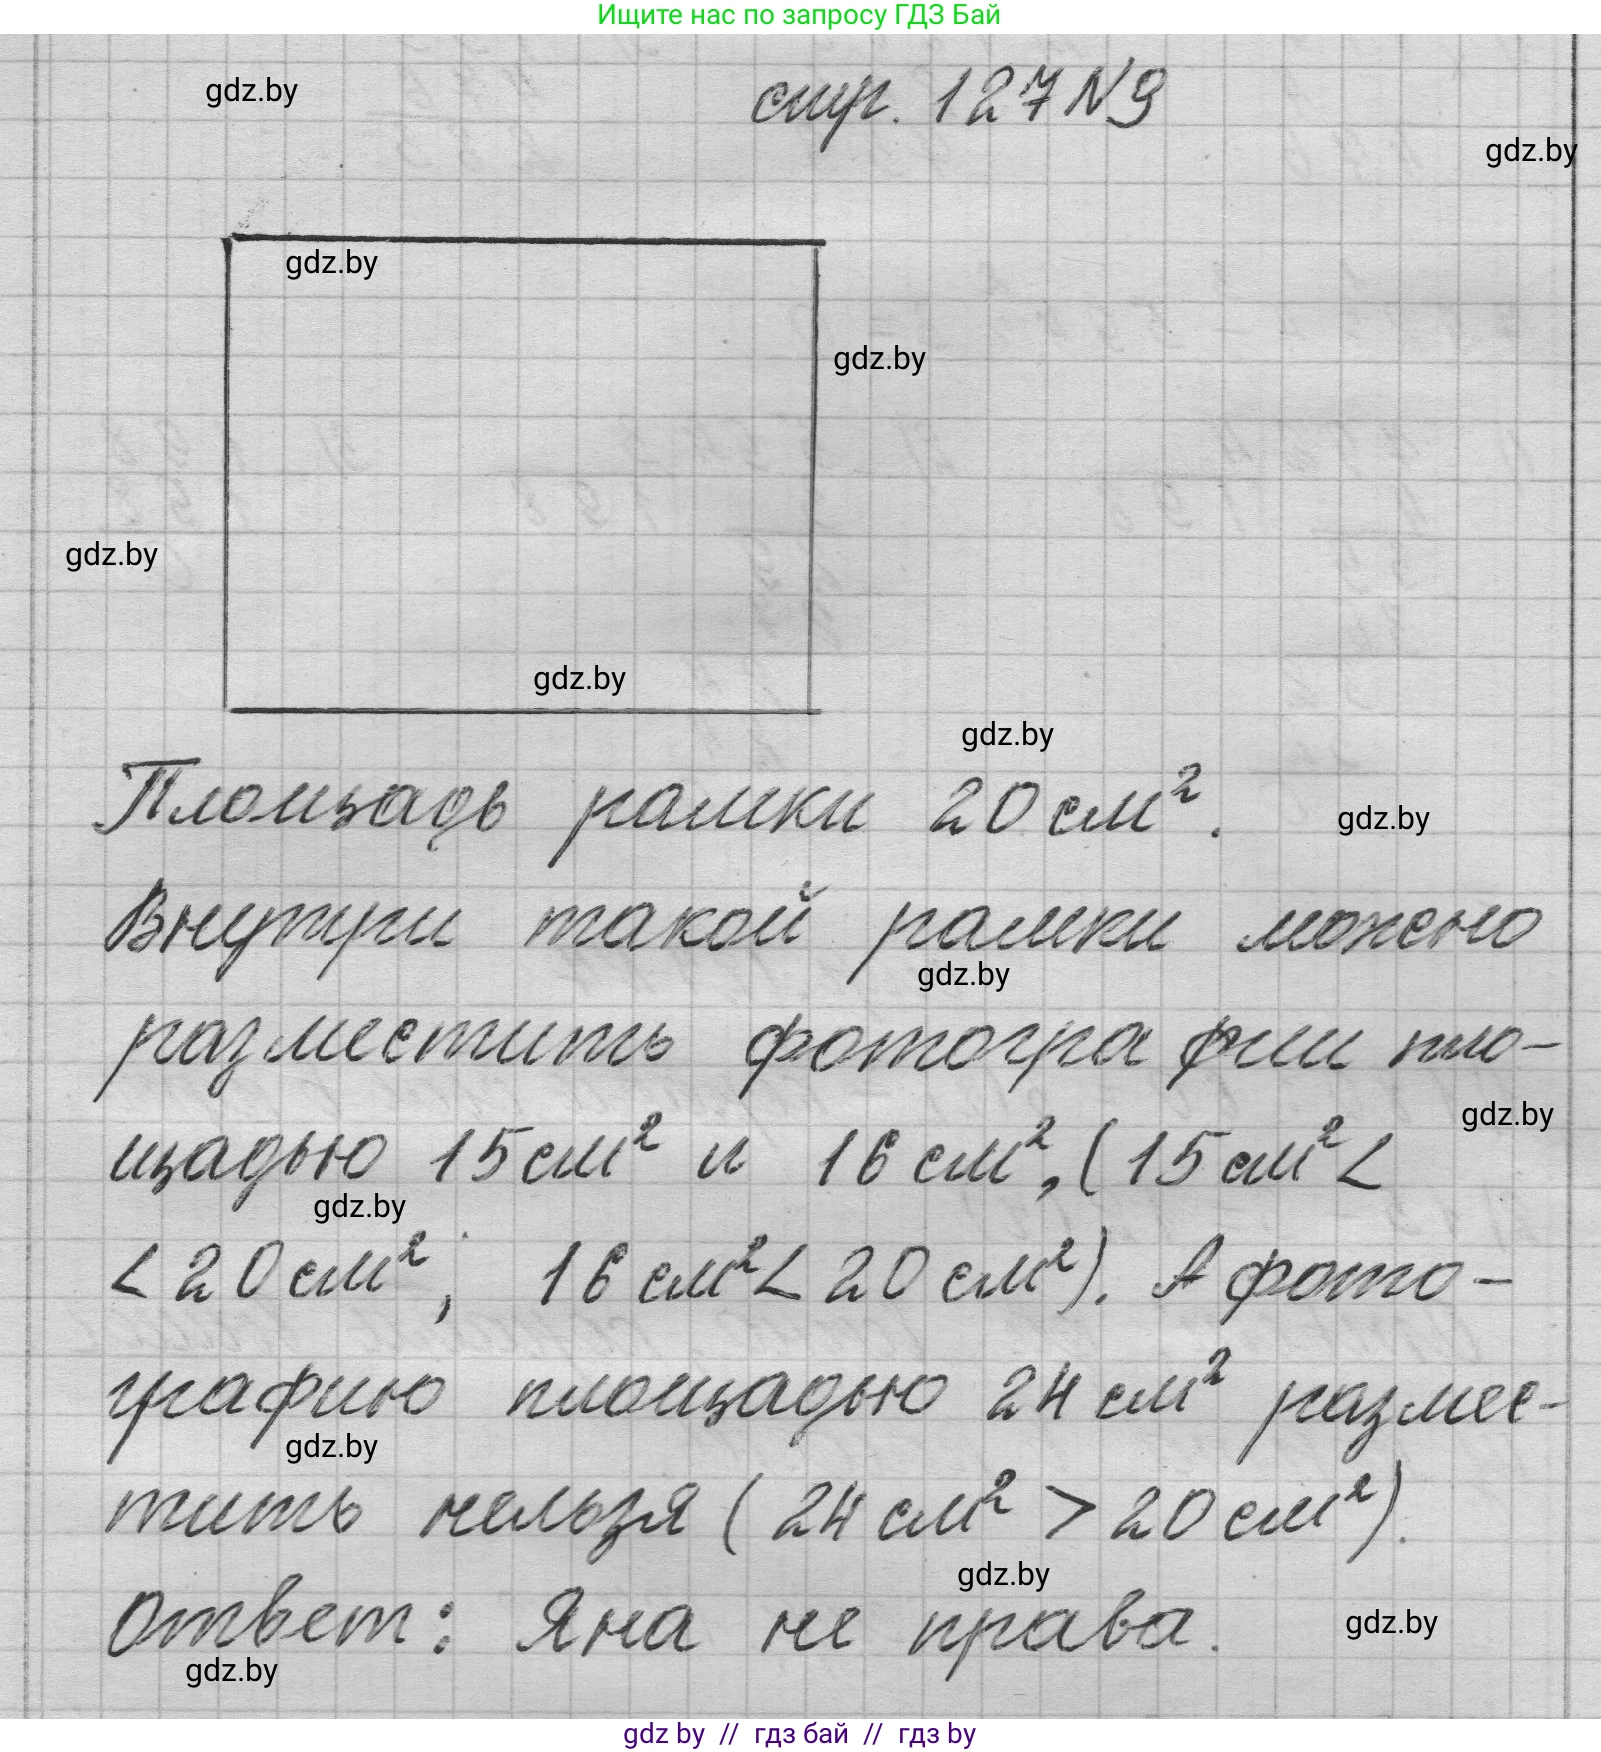 Ищите нас по запросу ГДЗ Бай
gdz.by
стр. 127 №9
gdz.by
gdz.by
gdz.by
gdz.by
gdz.by
gdz.by
Площадь рамки 20 см².
gdz.by
Внутри такой рамки можно
gdz.by
разместить фотографии пло-
gdz.by
щадью 15 см² и 16 см², (15 см² <
gdz.by
< 20 см²; 16 см² < 20 см²). А фото-
графию площадью 24 см² размес-
gdz.by
тить нельзя (24 см² > 20 см²).
gdz.by
Ответ: Яна не права.
gdz.by
gdz.by
gdz by // гдз бай // гдз by